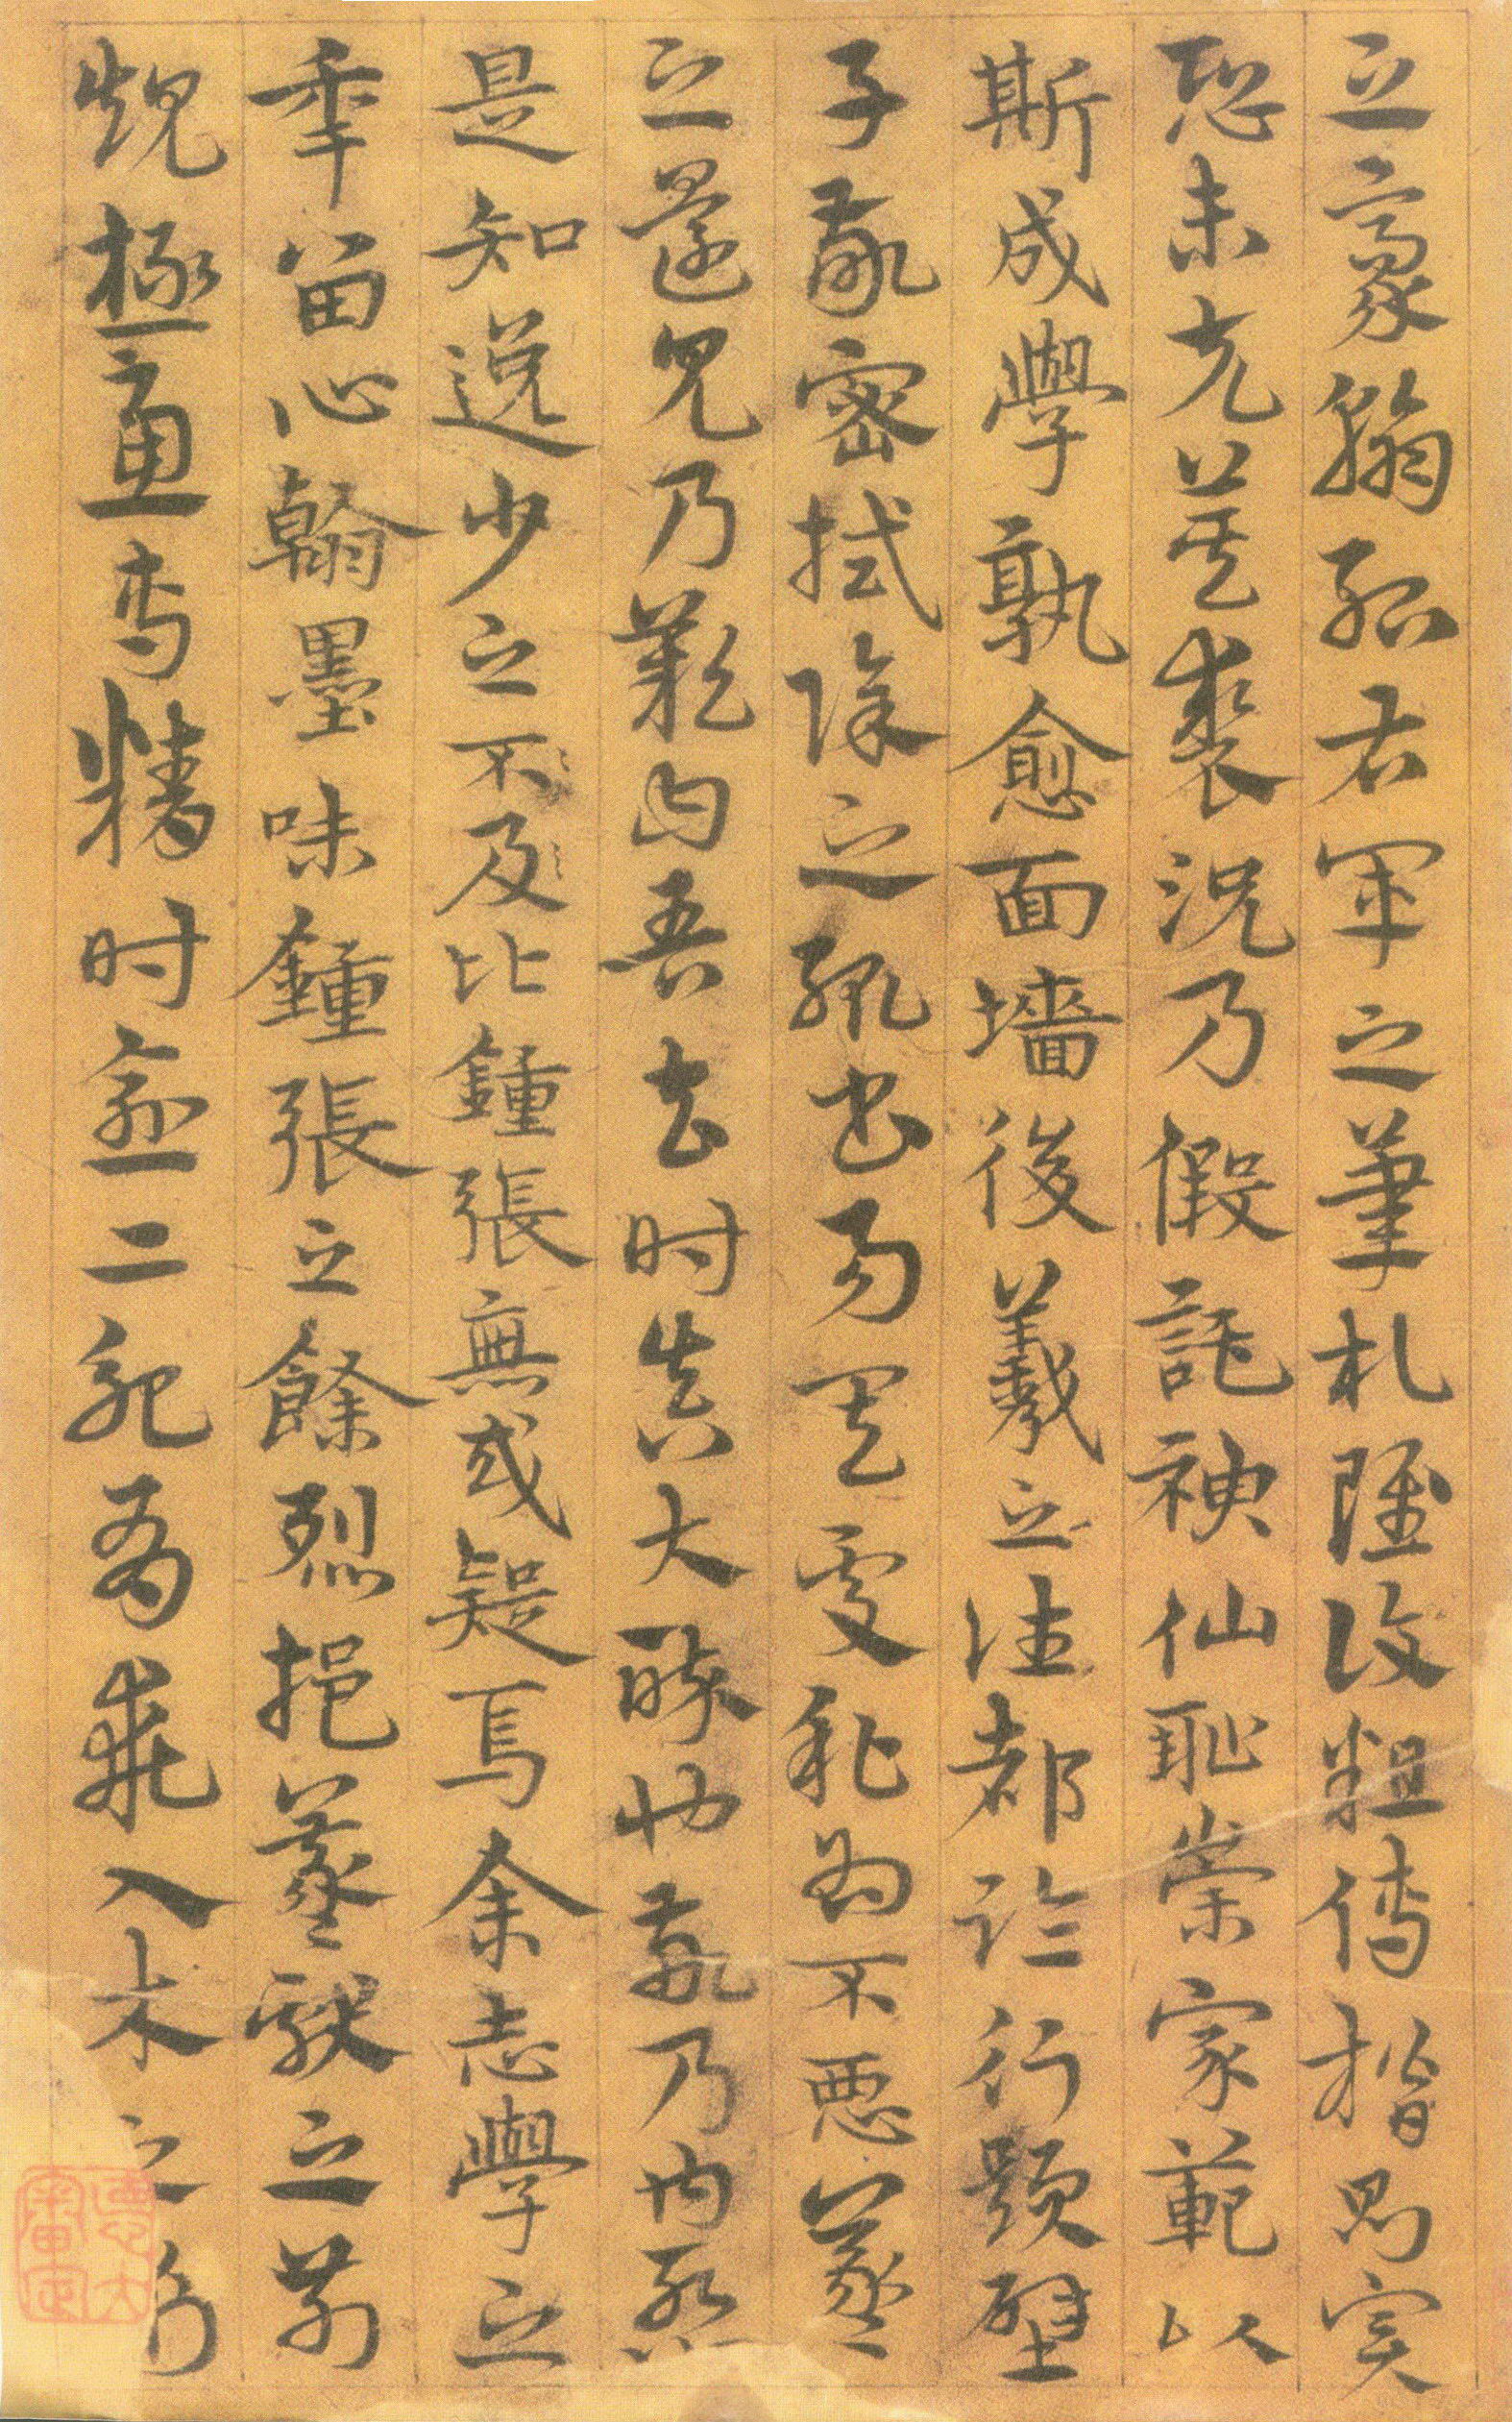 之豪翰紹右軍之筆札雖復粗傳楷則實
恐未克箕裘況乃假託神仙恥崇家範以
斯成學孰愈面墻後羲之往都臨行題壁
子敬密拭除之輒書易其處私為不惡羲
之還見乃歎曰吾去時真大醉也敬乃內慚
是知逸少之不及比鍾張無或疑焉余志學之
年留心翰墨味鍾張之餘烈挹羲獻之前
規極慮專精時逾二紀有乖入木之